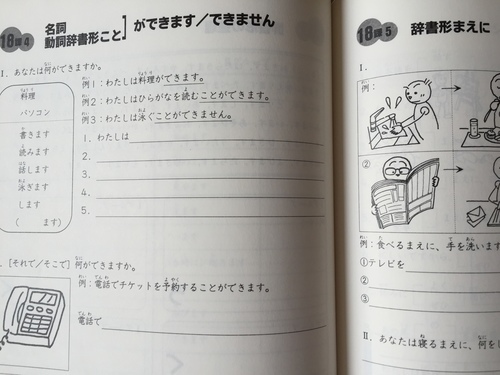 18課4
名詞
動詞辞書形こと] ができます/できません
I. あなたは何ができますか。
料理
パソコン
書きます
読みます
話します
泳ぎます
します
( ます)
例1:わたしは料理ができます。
例2:わたしはひらがなを読むことができます。
例3:わたしは泳ぐことができません。
1. わたしは
2.
3.
4.
5.
[それで/そこで] 何ができますか。
例:電話でチケットを予約することができます。
電話で
18課5
辞書形まえに
I.
例:
②
例:食べるまえに、手を洗います
①テレビを
②
③
II. あなたは寝るまえに、何を